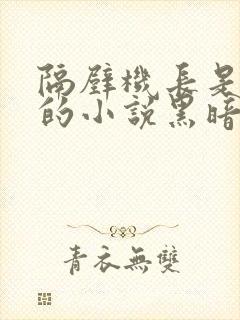 隔壁機長是
的小說黑暗
青衣無雙